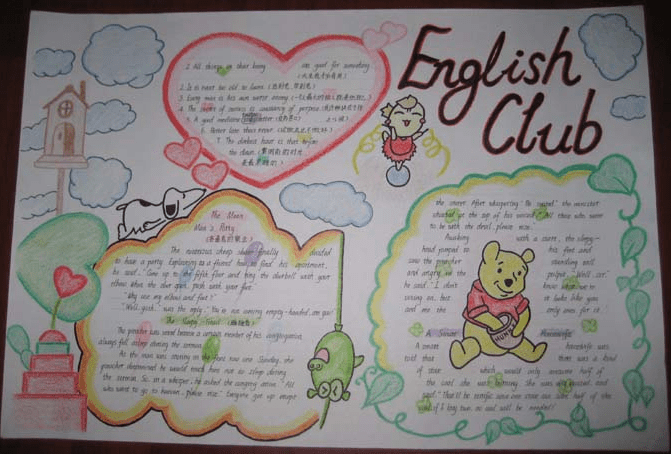 English
Club
1. All things in their being are good for something.
(天生我才必有用)
2. It is never too old to learn. (活到老,学到老)
3. Every man is his own worst enemy. (一个人最大的敌人就是他自己)
4. The secret of success is constancy of purpose.
5. A good medicine tastes bitter. (良药苦口
6. Better late than never. (迟做总比不做好)
7. The darkest hour is that before
the dawn. (黎明前的时分
是最黑暗的)
The Mean
Man's Party
The notorious cheap skate finally decided
to have a party. Explaining to a friend how to find his apartment,
he said, "Come up to the fifth floor and ring the doorbell with your
elbow. When the door open, push with your foot."
"Why use my elbow and foot?"
"Well, gosh," was the reply, "You're not coming empty-handed, are you?"
The Sleepy Friend
The preacher was vexed because a certain member of his congregation
always fell asleep during the sermon.
As the man was snoring in the front row one Sunday, the
preacher determined he would teach him not to sleep during
the sermon. So, in a whisper, he asked the congregation. "All
who want to go to heaven, please rise." Everyone got up except
the snorer. After whispering "Be seated", the minister
shouted at the top of his voice, "All those who want
to be with the devil, please rise."
Awaking with a start, the sleepy-
head jumped to his feet and
saw the preacher standing tall
and angry in the pulpit. "Well, sir,"
he said, "I don't know what we're
voting on, but it looks like you
and me the only ones for it."
A Smart Housewife
A smart housewife was
told that there was a kind
of stove which would only consume half of
the coal she was burning. She was very excited, and
said, "That'll be terrific. Since one stove can save half of the
coal, if I buy two, no coal will be needed!"
HUNNY